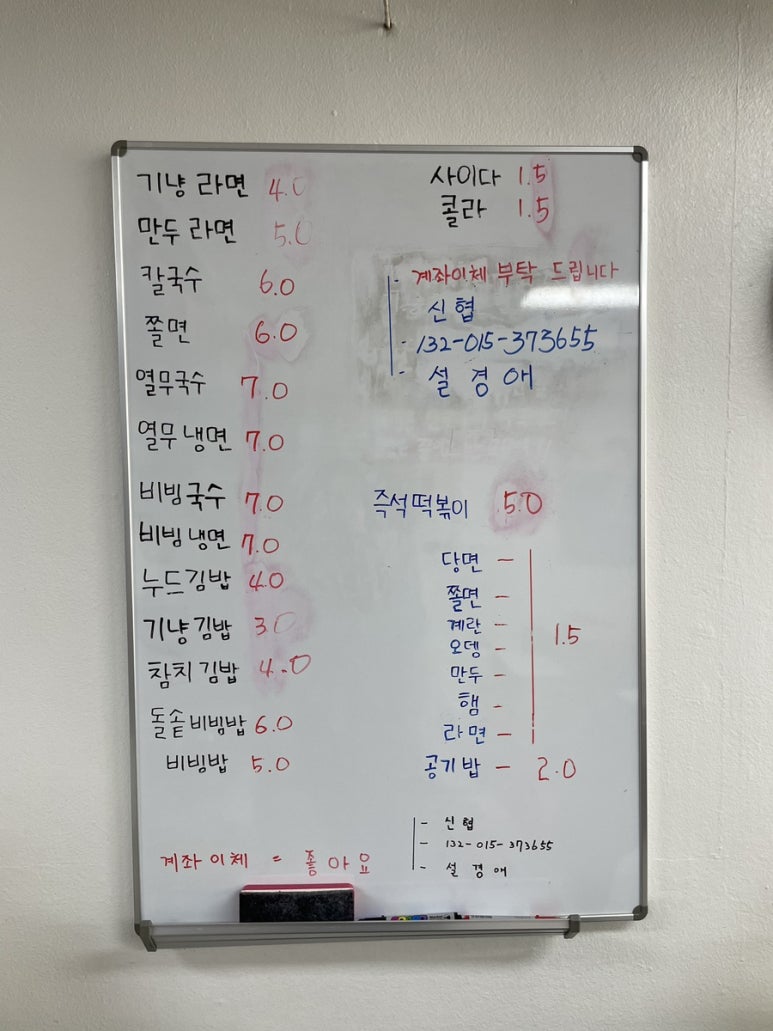 기냥 라면 4.0
만두 라면 5.0
칼국수 6.0
쫄면 6.0
열무국수 7.0
열무 냉면 7.0
비빔국수 7.0
비빔 냉면 7.0
누드김밥 4.0
기냥 김밥 3.0
참치 김밥 4.0
돌솥 비빔밥 6.0
비빔밥 5.0
계좌이체 = 좋아요
사이다 1.5
콜라 1.5
- 계좌이체 부탁 드립니다
신협
- 132-015-373655
- 설경애
즉석떡볶이 5.0
당면 -
쫄면 -
계란 -
오뎅 -
만두 -
햄 -
라면 -
1.5
공기밥 - 2.0
- 신협
- 132-015-373655
- 설경애